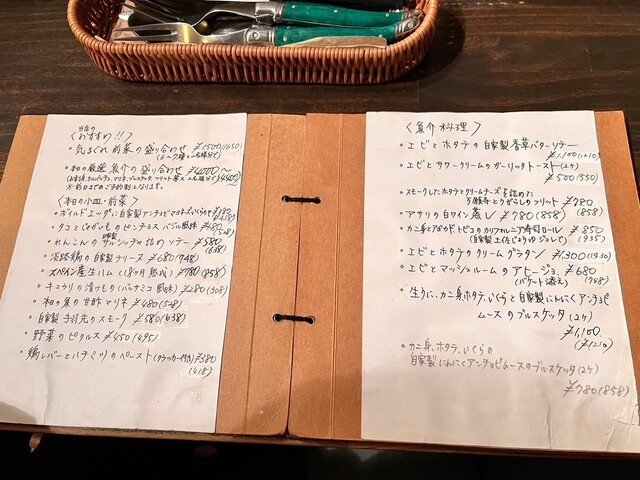 当店の
〈おすすめ!!〉
・気まぐれ前菜の盛り合わせ ¥1500(1650)
・本日の厳選 魚介の盛り合わせ ¥4000〜
(4400)
※前日までのご予約制となります。
〈本日の小皿・前菜〉
・ボイルドエッグに自家製アンチョビマヨネーズ
・タコとじゃがいものピンチョス バジル風味 ¥480
(528)
・れんこんの自家製サルシッチャ詰めソテー ¥580
(638)
・淡路鶏の自家製 ¥680(748)
・スペイン産生ハム(18か月熟成) ¥780(858)
・キュウリの漬けもの(バルサミコ風味) ¥280(308)
・和の魚の甘酢マリネ ¥480(528)
・自家製手羽先のスモーク ¥580(638)
・野菜のピクルス ¥450(495)
・鶏レバーとハチミツのペースト(クラッカー付き) ¥380
(418)
〈魚介料理〉
・エビとホタテの自家製香草バターソテー
¥1,100(1210)
・エビとサワークリームのガーリックトースト(2ケ)
¥500(550)
・スモークしたホタテとクリームチーズを詰めた
万願寺とうがらしのフリット ¥780
(858)
・アサリの白ワイン蒸し ¥780(858)
・カニ身とアボカドとトビコのカリフォルニア寿司ロール ¥850
(自家製土佐じょうゆのジュレで) (935)
・エビとホタテのクリームグラタン ¥1,300(1430)
・エビとマッシュルームのアヒージョ ¥680
(バゲット添え) (748)
・生うに、カニ身、ホタテ、いくらと自家製にんにくアンチョビ
ムースのブルスケッタ(2ケ)
¥1,100
(¥1,210)
・カニ身、ホタテ、いくらの
自家製にんにくアンチョビムースのブルスケッタ(2ケ)
¥780(858)